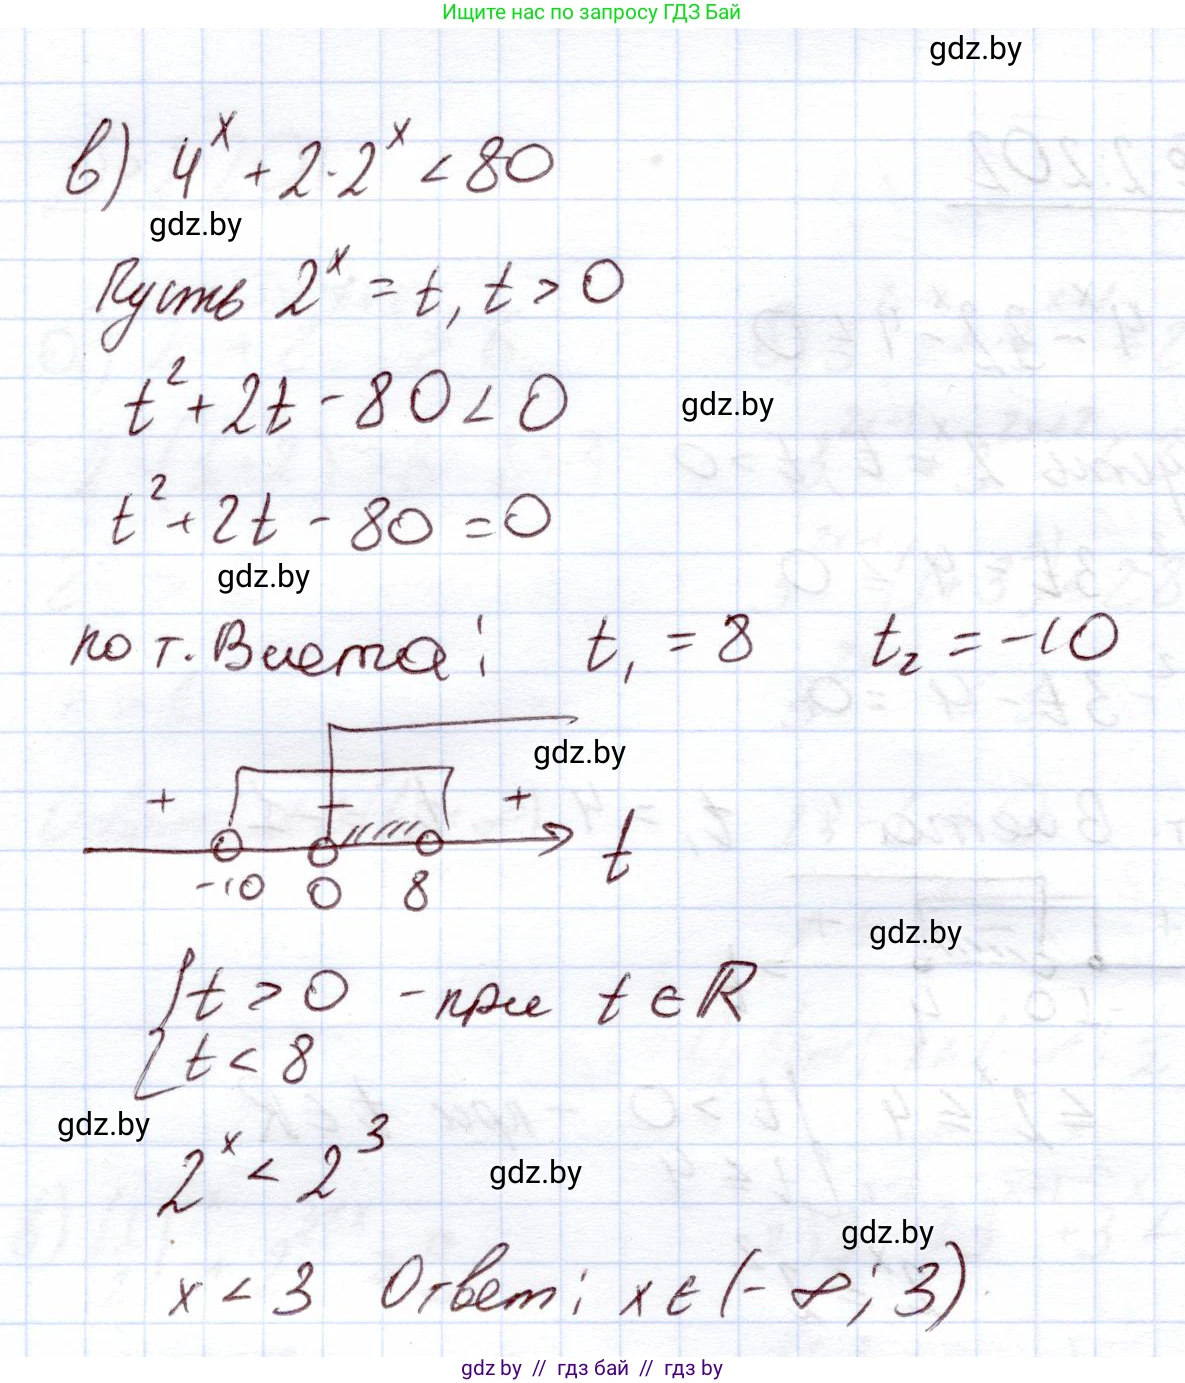 Ищите нас по запросу ГДЗ Бай
gdz.by
в) 4ˣ + 2 · 2ˣ < 80
gdz.by
Пусть 2ˣ = t, t > 0
t² + 2t - 80 < 0
gdz.by
t² + 2t - 80 = 0
gdz.by
по т. Виета: t₁ = 8 t₂ = -10
gdz.by
+ - +
t
-10 0 8
gdz.by
{ t > 0 - при t ∈ ℝ
t < 8
gdz.by
2ˣ < 2³
gdz.by
gdz.by
x < 3 Ответ: x ∈ (-∞; 3)
gdz.by // гдз бай // гдз by